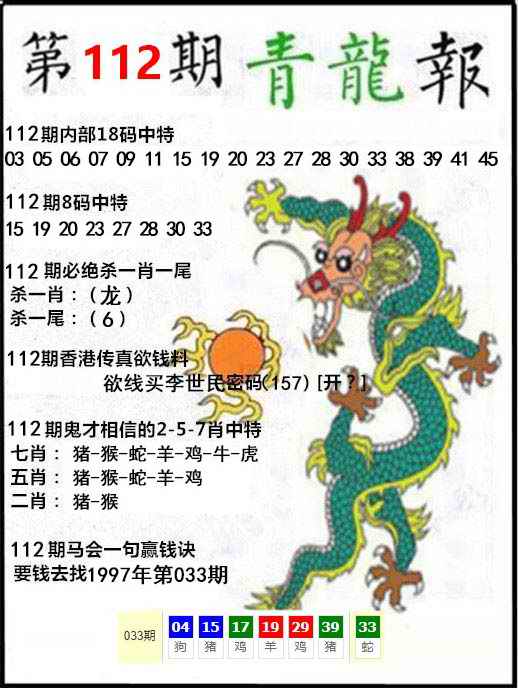 第112期青龍報
112期内部18码中特
03 05 06 07 09 11 15 19 20 23 27 28 30 33 38 39 41 45
112期8码中特
15 19 20 23 27 28 30 33
112期必绝杀一肖一尾
杀一肖：（龙）
杀一尾：（6）
112期香港传真欲钱料
欲线买李世民密码(157) [开？]
112期鬼才相信的2-5-7肖中特
七肖： 猪-猴-蛇-羊-鸡-牛-虎
五肖： 猪-猴-蛇-羊-鸡
二肖： 猪-猴
112期马会一句赢钱诀
要钱去找1997年第033期
033期 04 15 17 19 29 39 33
狗 猪 鸡 羊 鸡 猪 蛇